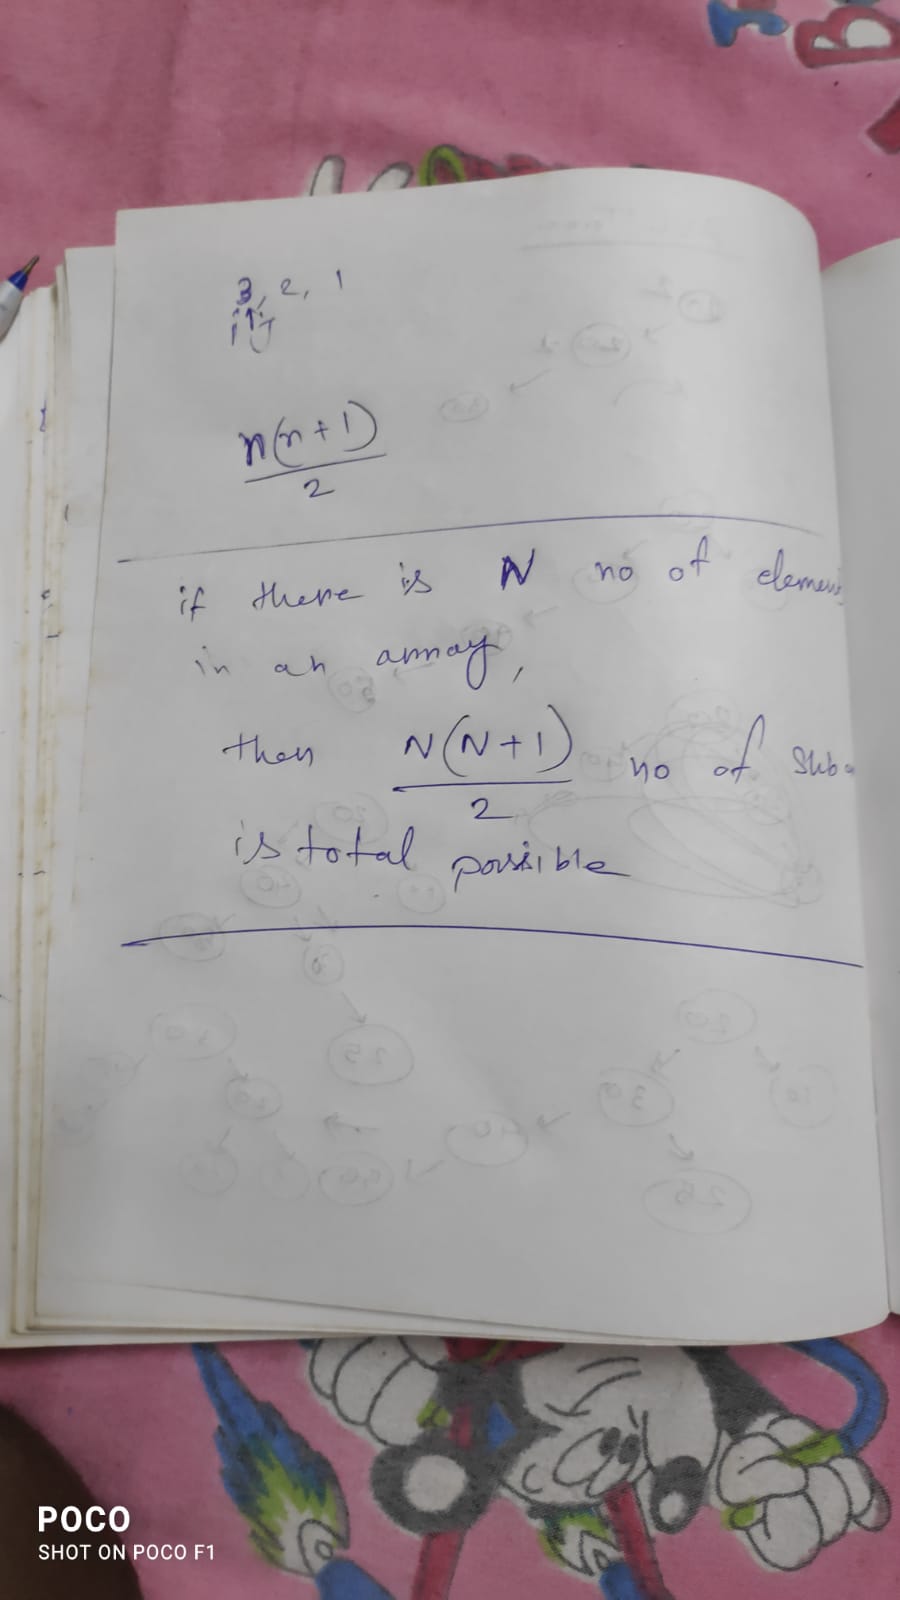 3, 2, 1
i j
n(n+1)
2
if there is N no of elemen
in an array,
then N(N+1) no of sub
2
is total possible
POCO
SHOT ON POCO F1